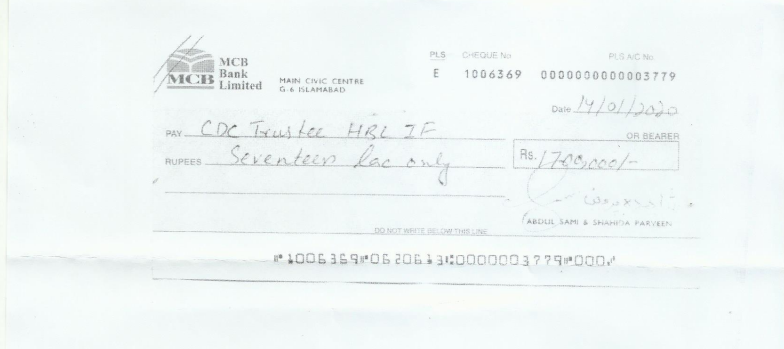 MCB
Bank
Limited
MCB
MAIN CIVIC CENTRE
G-6 ISLAMABAD
PLS CHEQUE No PLS A/C No.
E 1006369 0000000000003779
Date 14/01/2020
PAY CDC Trustee HBL IF OR BEARER
RUPEES Seventeen lac only Rs. 1700,000/-
ABDUL SAMI & SHAHIDA PARVEEN
DO NOT WRITE BELOW THIS LINE
⑈1006369⑈0620613⑆0000003779⑈000⑈